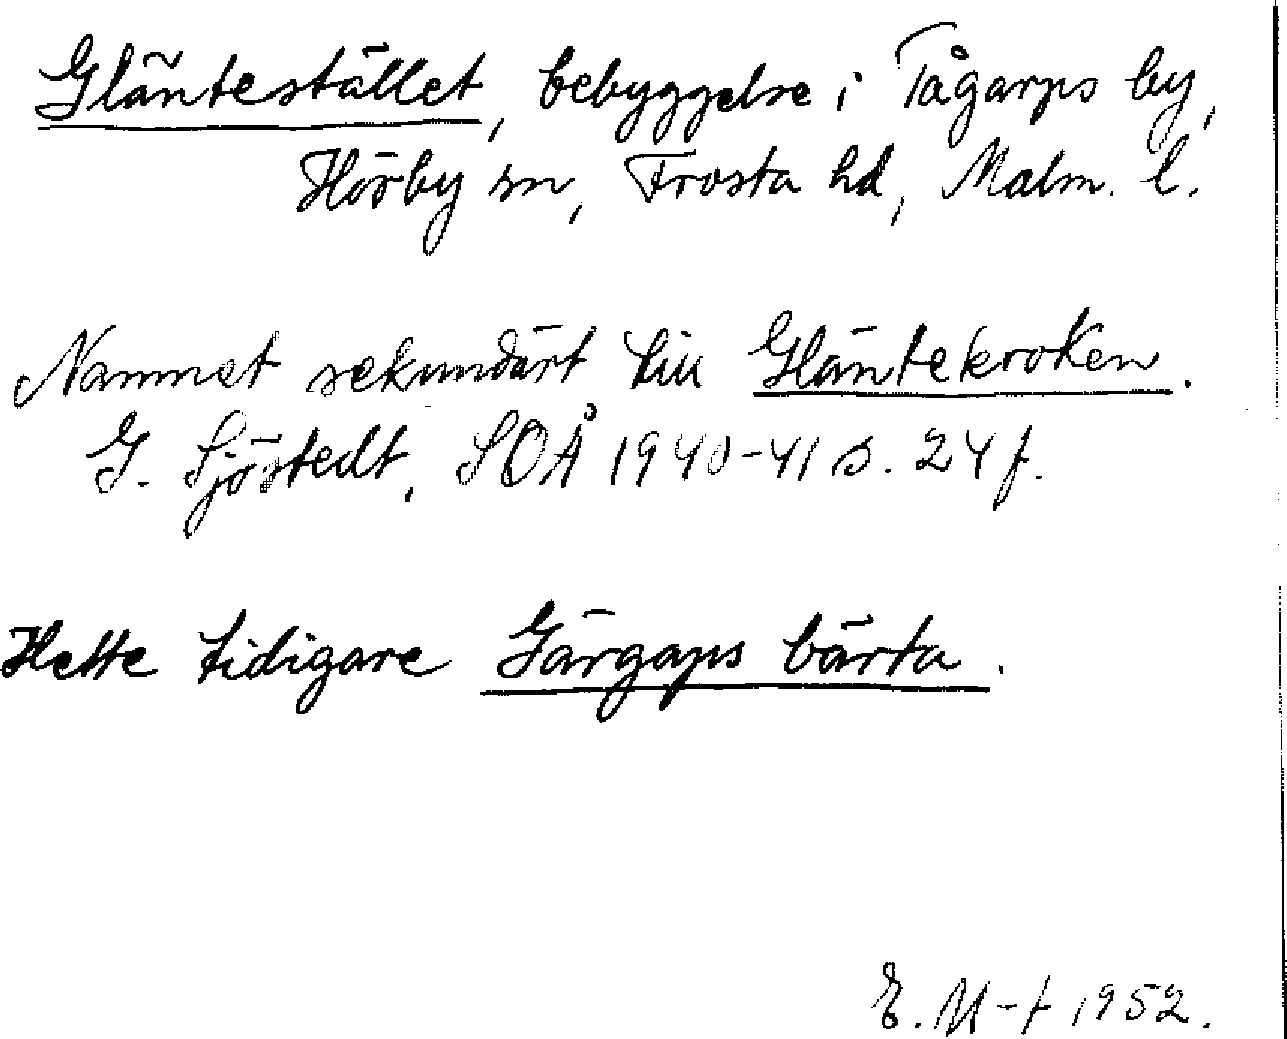 Gläntestället, bebyggelse i Tågarps by,
Hörby sn, Frosta hd, Malm. l.
Namnet sekundärt till Gläntekroken.
G. Sjöstedt, SOÅ 1940-41 s. 24 f.
Hette tidigare Gärgaps bärta.
E. M-t 1952.